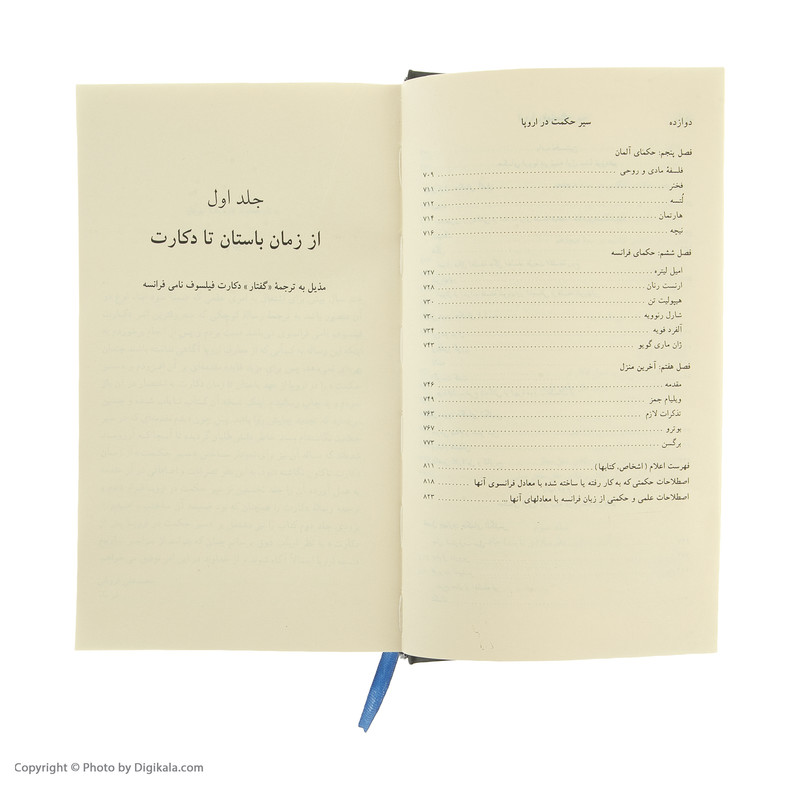 دوازده سیر حکمت در اروپا
فصل پنجم: حکمای آلمان
فلسفهٔ مادی و روحی ........ ۷۰۹
فخنر ........ ۷۱۱
لُتسه ........ ۷۱۲
هارتمان ........ ۷۱۴
نیچه ........ ۷۱۶
فصل ششم: حکمای فرانسه
امیل لیتره ........ ۷۲۷
ارنست رنان ........ ۷۲۸
هیپولیت تن ........ ۷۳۰
شارل رنوویه ........ ۷۳۰
آلفرد فویه ........ ۷۳۴
ژان ماری گویو ........ ۷۴۳
فصل هفتم: آخرین منزل
مقدمه ........ ۷۴۶
ویلیام جمز ........ ۷۴۹
تذکرات لازم ........ ۷۶۳
بوترو ........ ۷۶۷
برگسن ........ ۷۷۳
فهرست اعلام (اشخاص، کتابها) ........ ۸۱۱
اصطلاحات حکمتی که به کار رفته یا ساخته شده با معادل فرانسوی آنها ........ ۸۱۸
اصطلاحات علمی و حکمتی از زبان فرانسه با معادلهای آنها ... ........ ۸۲۳
جلد اول
از زمان باستان تا دکارت
مذیل به ترجمهٔ «گفتار» دکارت فیلسوف نامی فرانسه
Copyright © Photo by Digikala.com